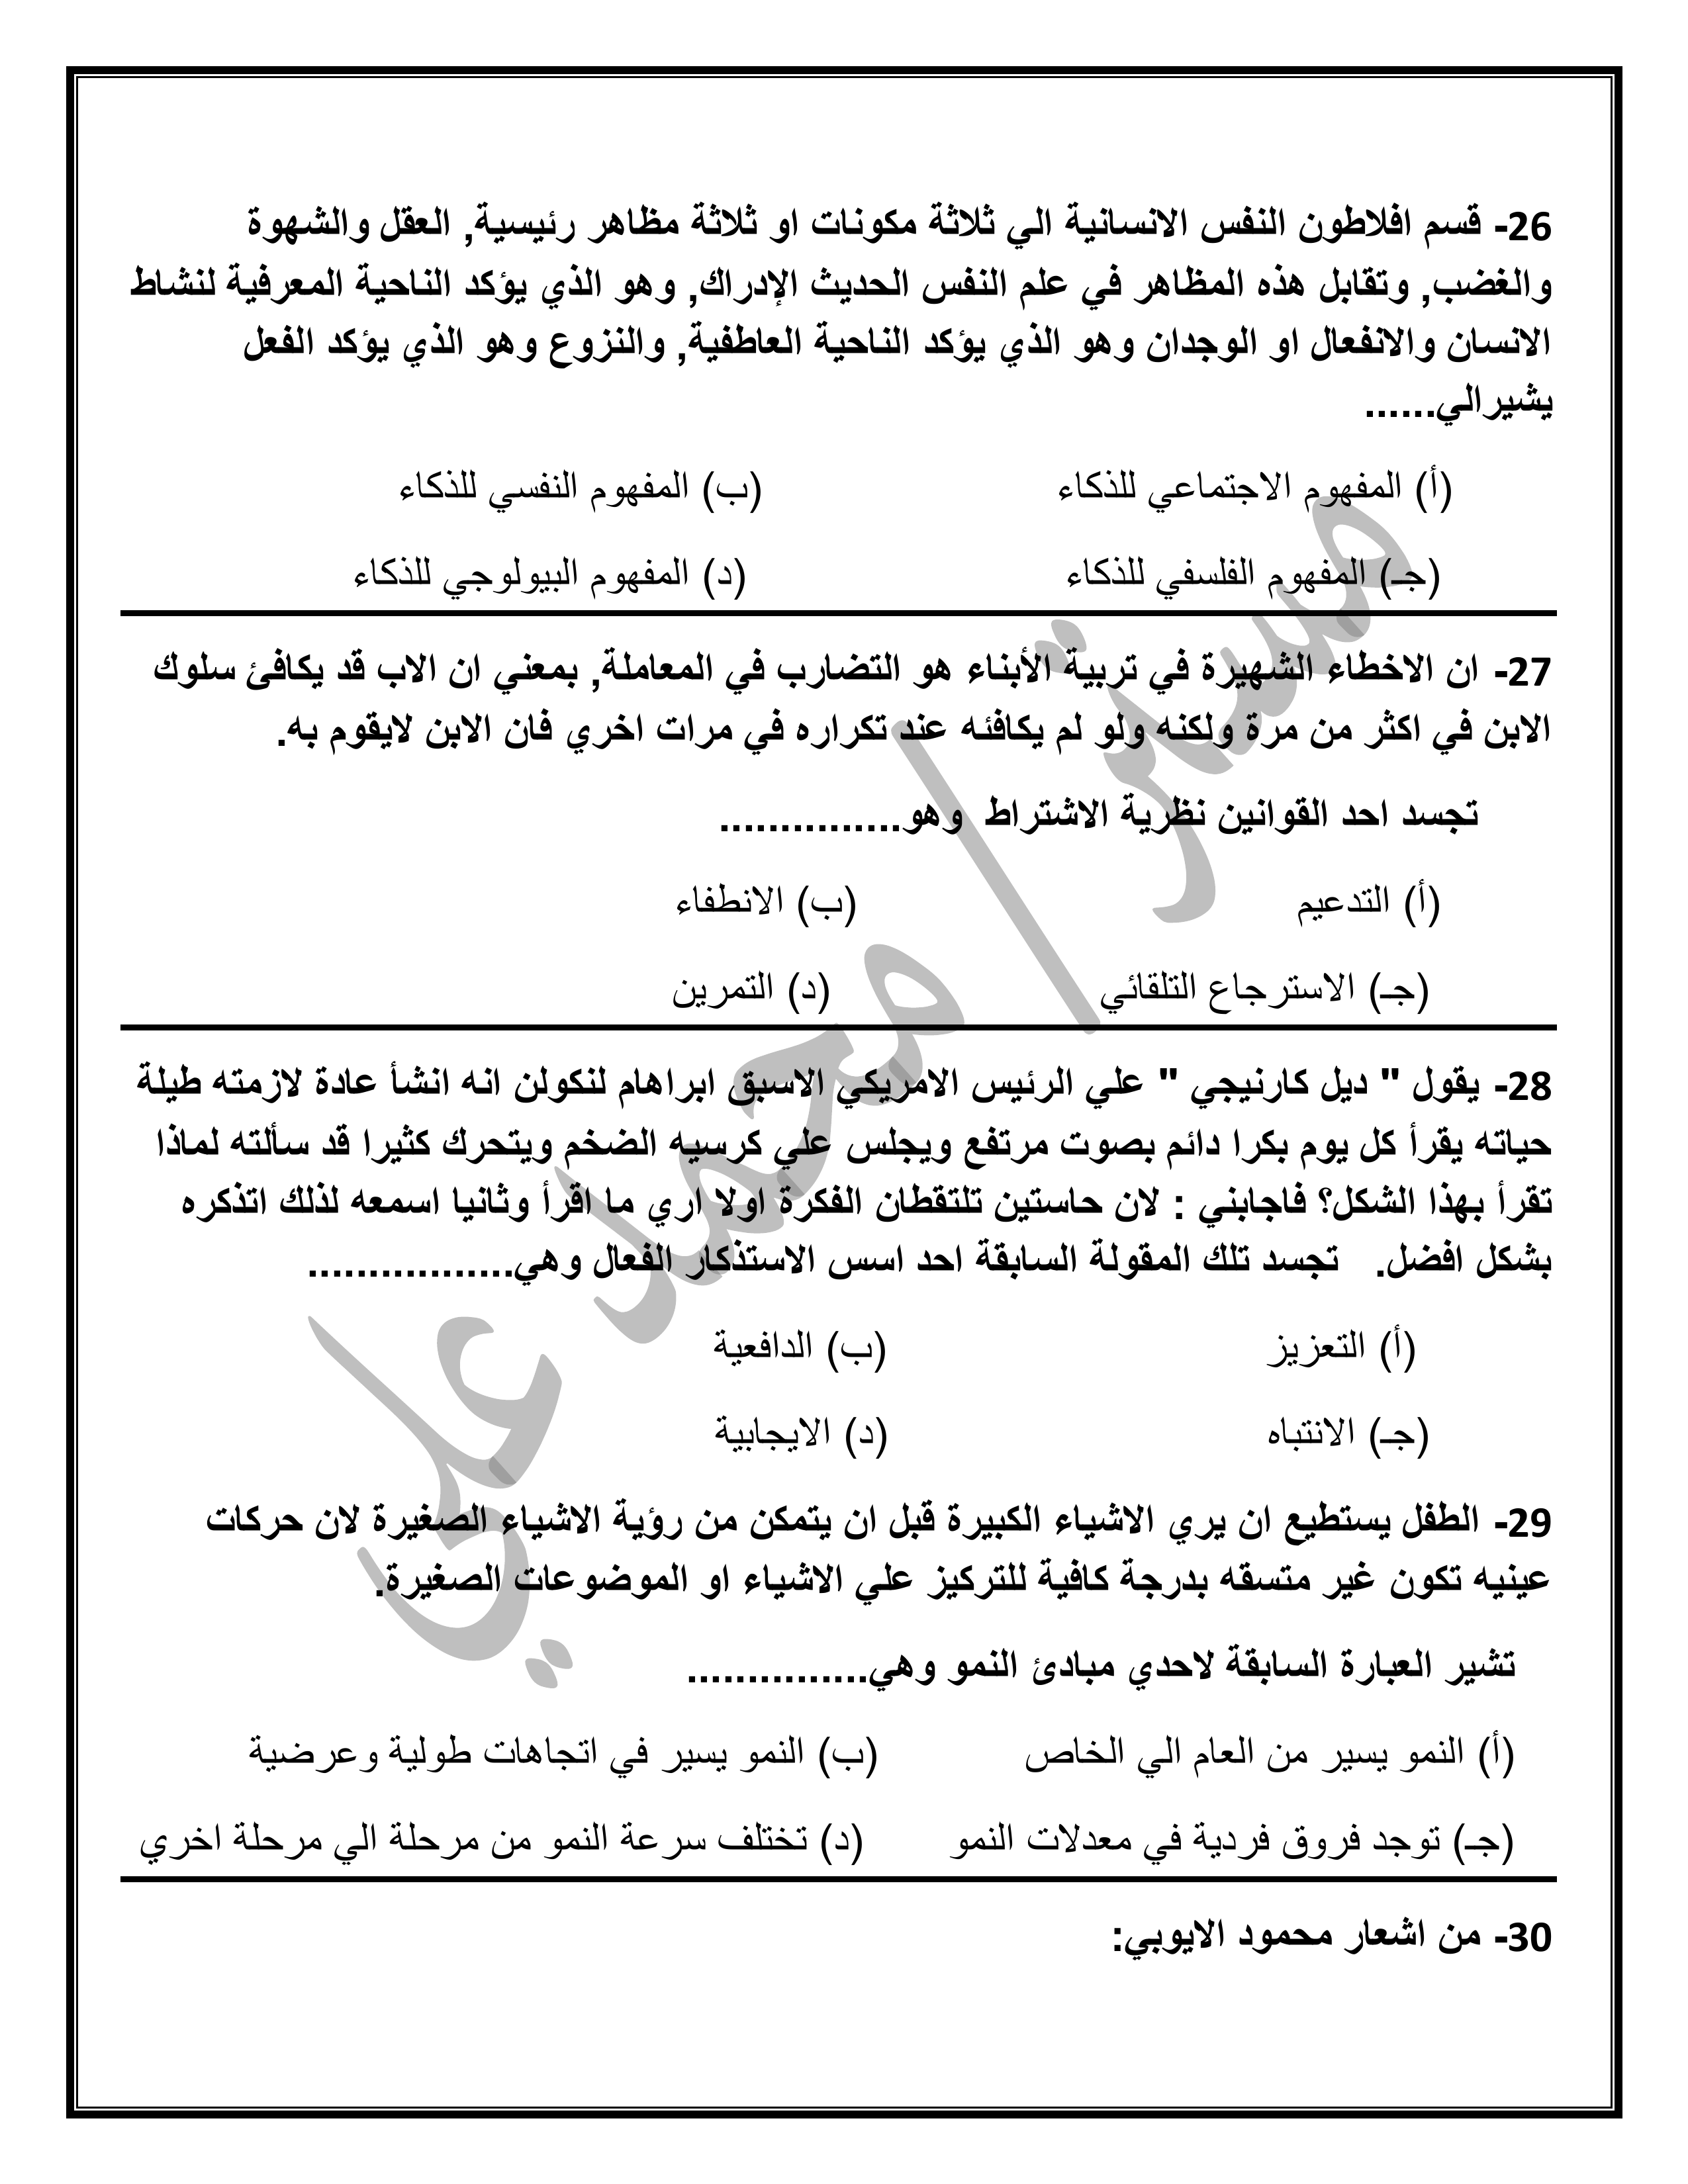 26- قسم افلاطون النفس الانسانية الي ثلاثة مكونات او ثلاثة مظاهر رئيسية, العقل والشهوة
والغضب, وتقابل هذه المظاهر في علم النفس الحديث الإدراك, وهو الذي يؤكد الناحية المعرفية لنشاط
الانسان والانفعال او الوجدان وهو الذي يؤكد الناحية العاطفية, والنزوع وهو الذي يؤكد الفعل
يشيرالي......
(أ) المفهوم الاجتماعي للذكاء (ب) المفهوم النفسي للذكاء
(جـ) المفهوم الفلسفي للذكاء (د) المفهوم البيولوجي للذكاء
27- ان الاخطاء الشهيرة في تربية الأبناء هو التضارب في المعاملة, بمعني ان الاب قد يكافئ سلوك
الابن في اكثر من مرة ولكنه ولو لم يكافئه عند تكراره في مرات اخري فان الابن لايقوم به.
تجسد احد القوانين نظرية الاشتراط وهو...............
(أ) التدعيم (ب) الانطفاء
(جـ) الاسترجاع التلقائي (د) التمرين
28- يقول " ديل كارنيجي " علي الرئيس الامريكي الاسبق ابراهام لنكولن انه انشأ عادة لازمته طيلة
حياته يقرأ كل يوم بكرا دائم بصوت مرتفع ويجلس علي كرسيه الضخم ويتحرك كثيرا قد سألته لماذا
تقرأ بهذا الشكل؟ فاجابني : لان حاستين تلتقطان الفكرة اولا اري ما اقرأ وثانيا اسمعه لذلك اتذكره
بشكل افضل. تجسد تلك المقولة السابقة احد اسس الاستذكار الفعال وهي.................
(أ) التعزيز (ب) الدافعية
(جـ) الانتباه (د) الايجابية
29- الطفل يستطيع ان يري الاشياء الكبيرة قبل ان يتمكن من رؤية الاشياء الصغيرة لان حركات
عينيه تكون غير متسقه بدرجة كافية للتركيز علي الاشياء او الموضوعات الصغيرة.
تشير العبارة السابقة لاحدي مبادئ النمو وهي...............
(أ) النمو يسير من العام الي الخاص (ب) النمو يسير في اتجاهات طولية وعرضية
(جـ) توجد فروق فردية في معدلات النمو (د) تختلف سرعة النمو من مرحلة الي مرحلة اخري
30- من اشعار محمود الايوبي:
مستر/ محمد علي